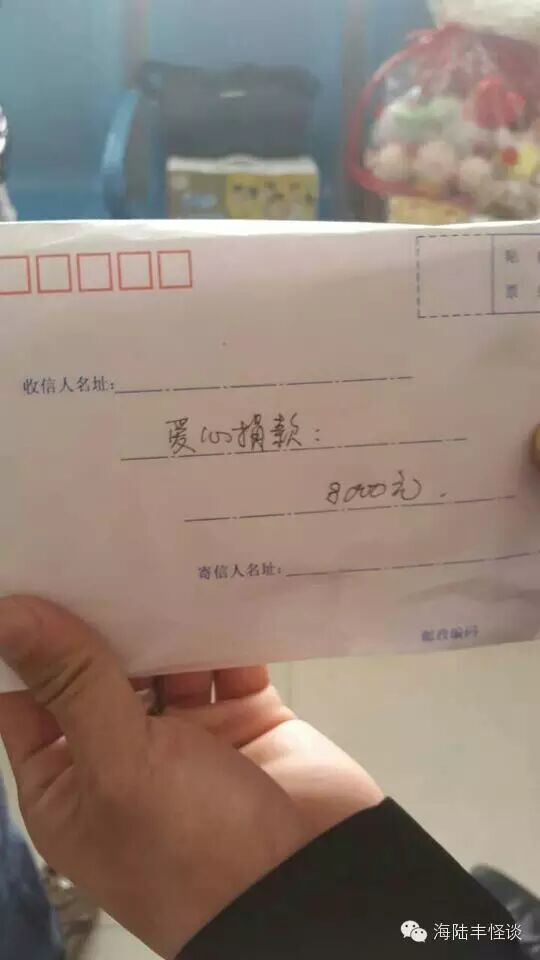 贴
票
收信人名址：
爱心捐款：
8000元.
寄信人名址：
邮政编码
海陆丰怪谈